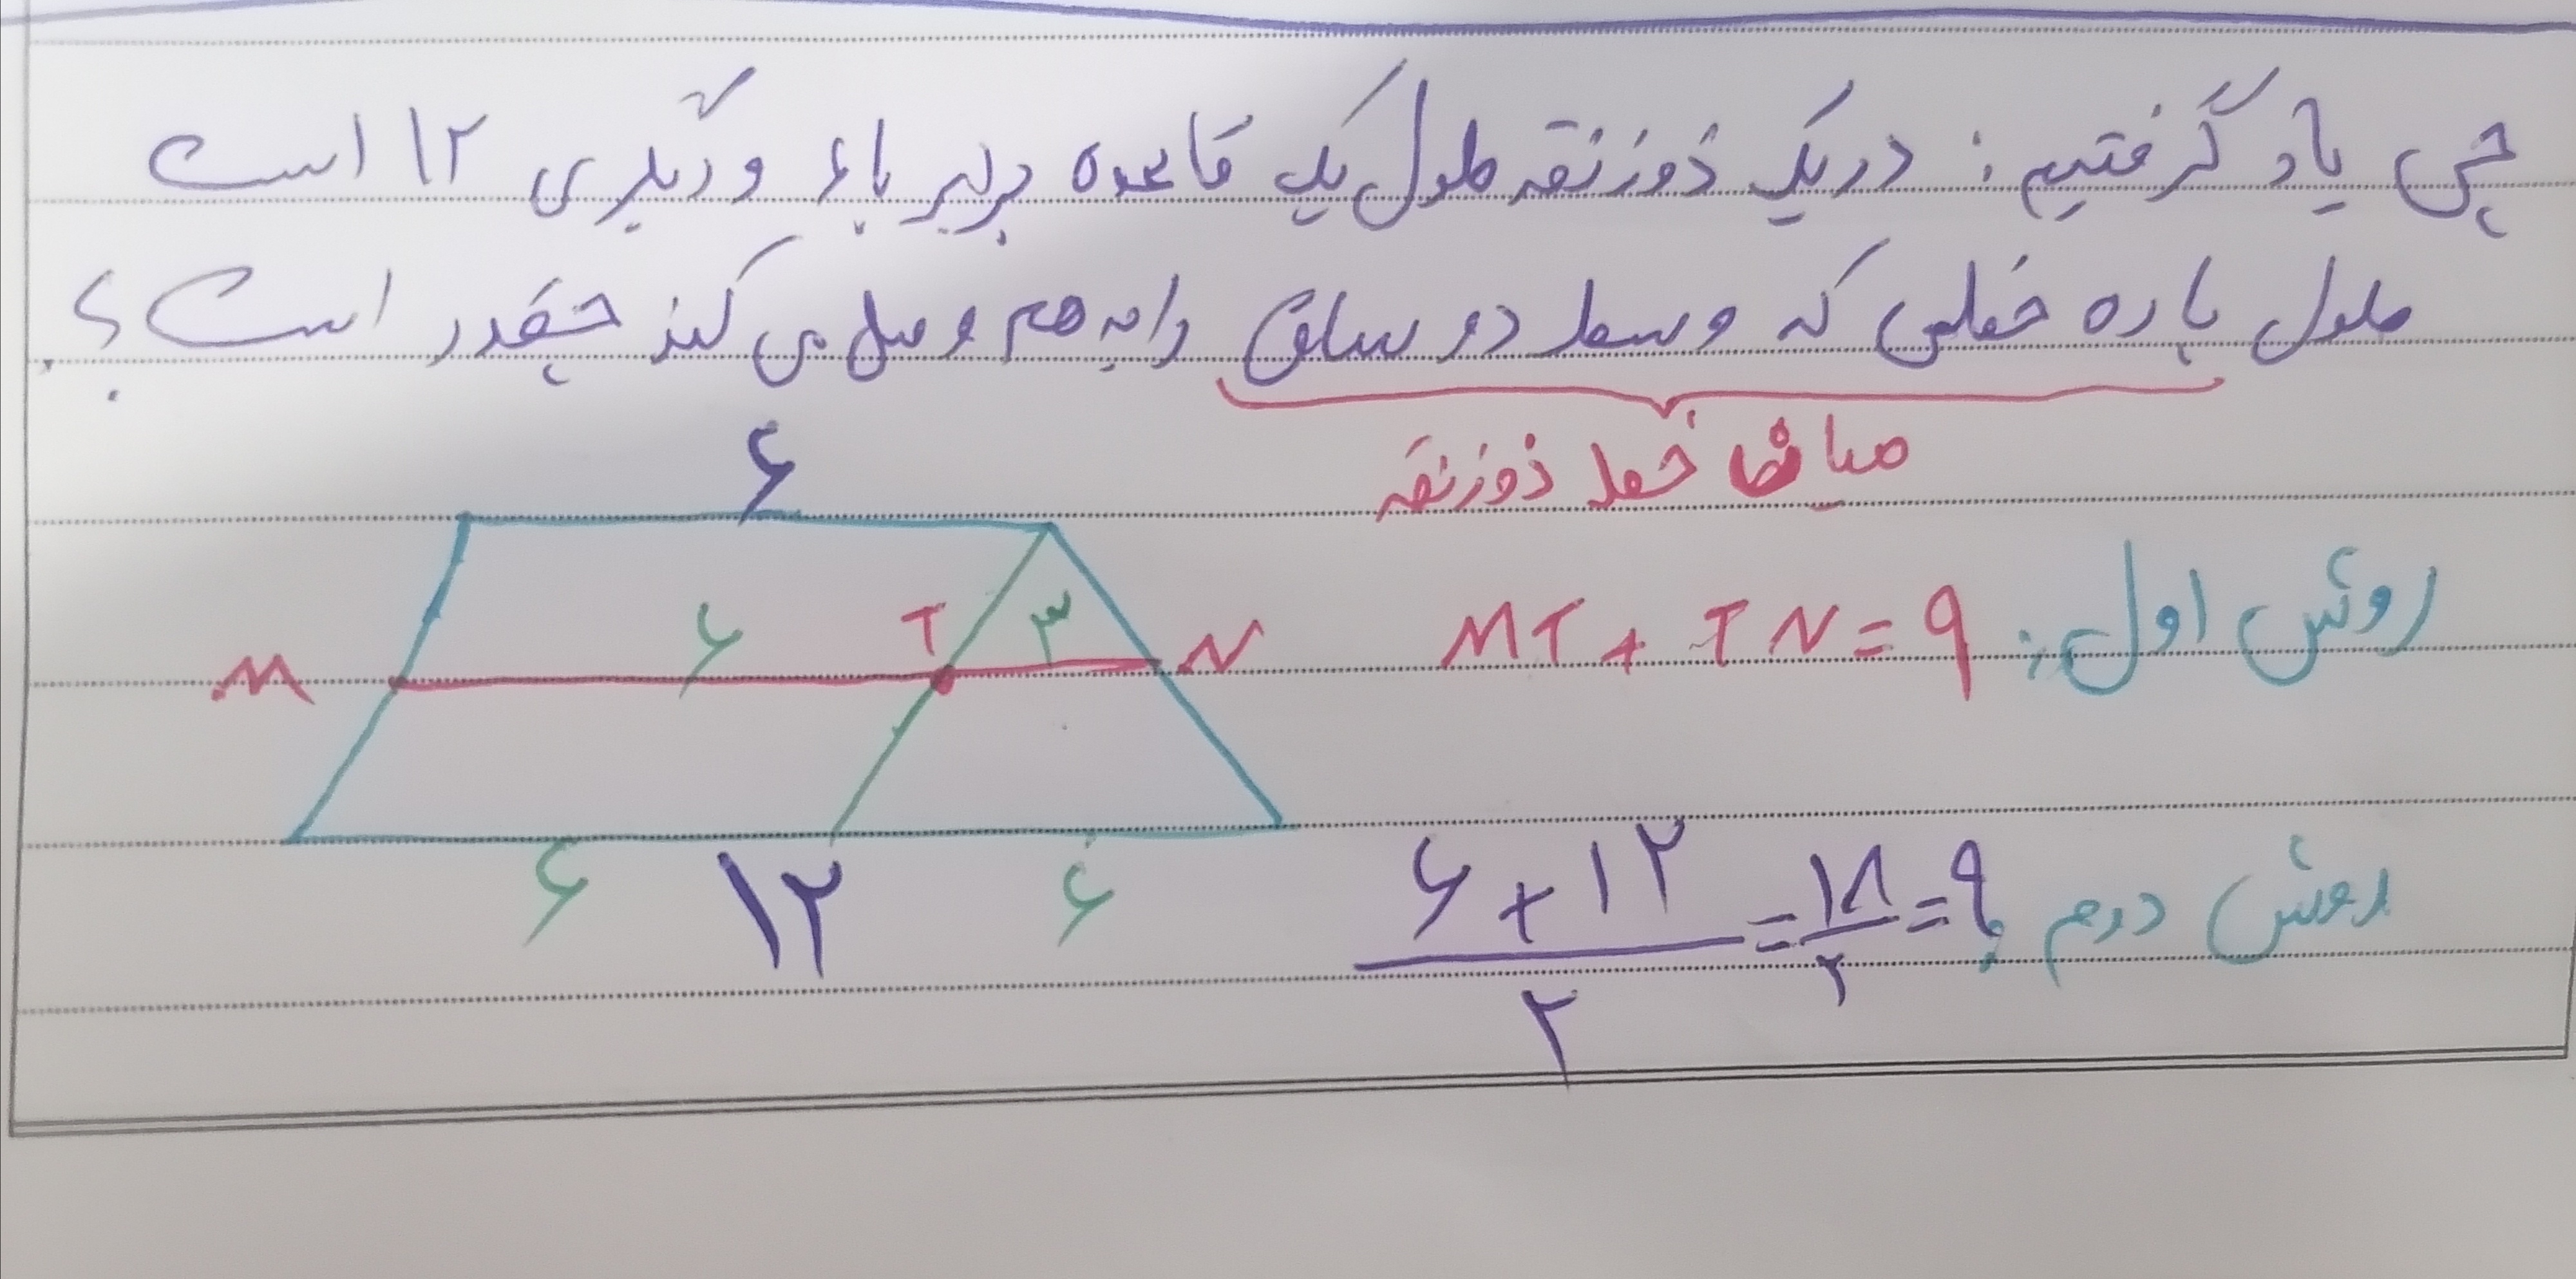 چی یاد گرفتیم : در یک ذوزنقه طول یک قاعده برابر با ۶ و دیگری ۱۲ است
طول پاره خطی که وسط دو ساق را به هم وصل می کند چقدر است ؟
میان خط ذوزنقه
۶
روش اول : MT + TN = ۹
M ۶ T ۳ N
۶ ۱۲ ۶
روش دوم : ۶ + ۱۲ / ۲ = ۱۸ / ۲ = ۹